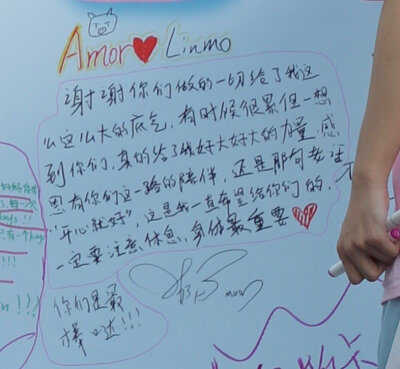 Amor Linmo
谢谢你们做的一切给了我这
么这么大的底气，有时候很累但一想
到你们，真的给了我好大好大的力量，感
恩有你们这一路的陪伴，还是那句老
"开心就好"，这是我一直希望给你们的，
一定要注意休息，身体最重要
你们是最
棒哒!!!